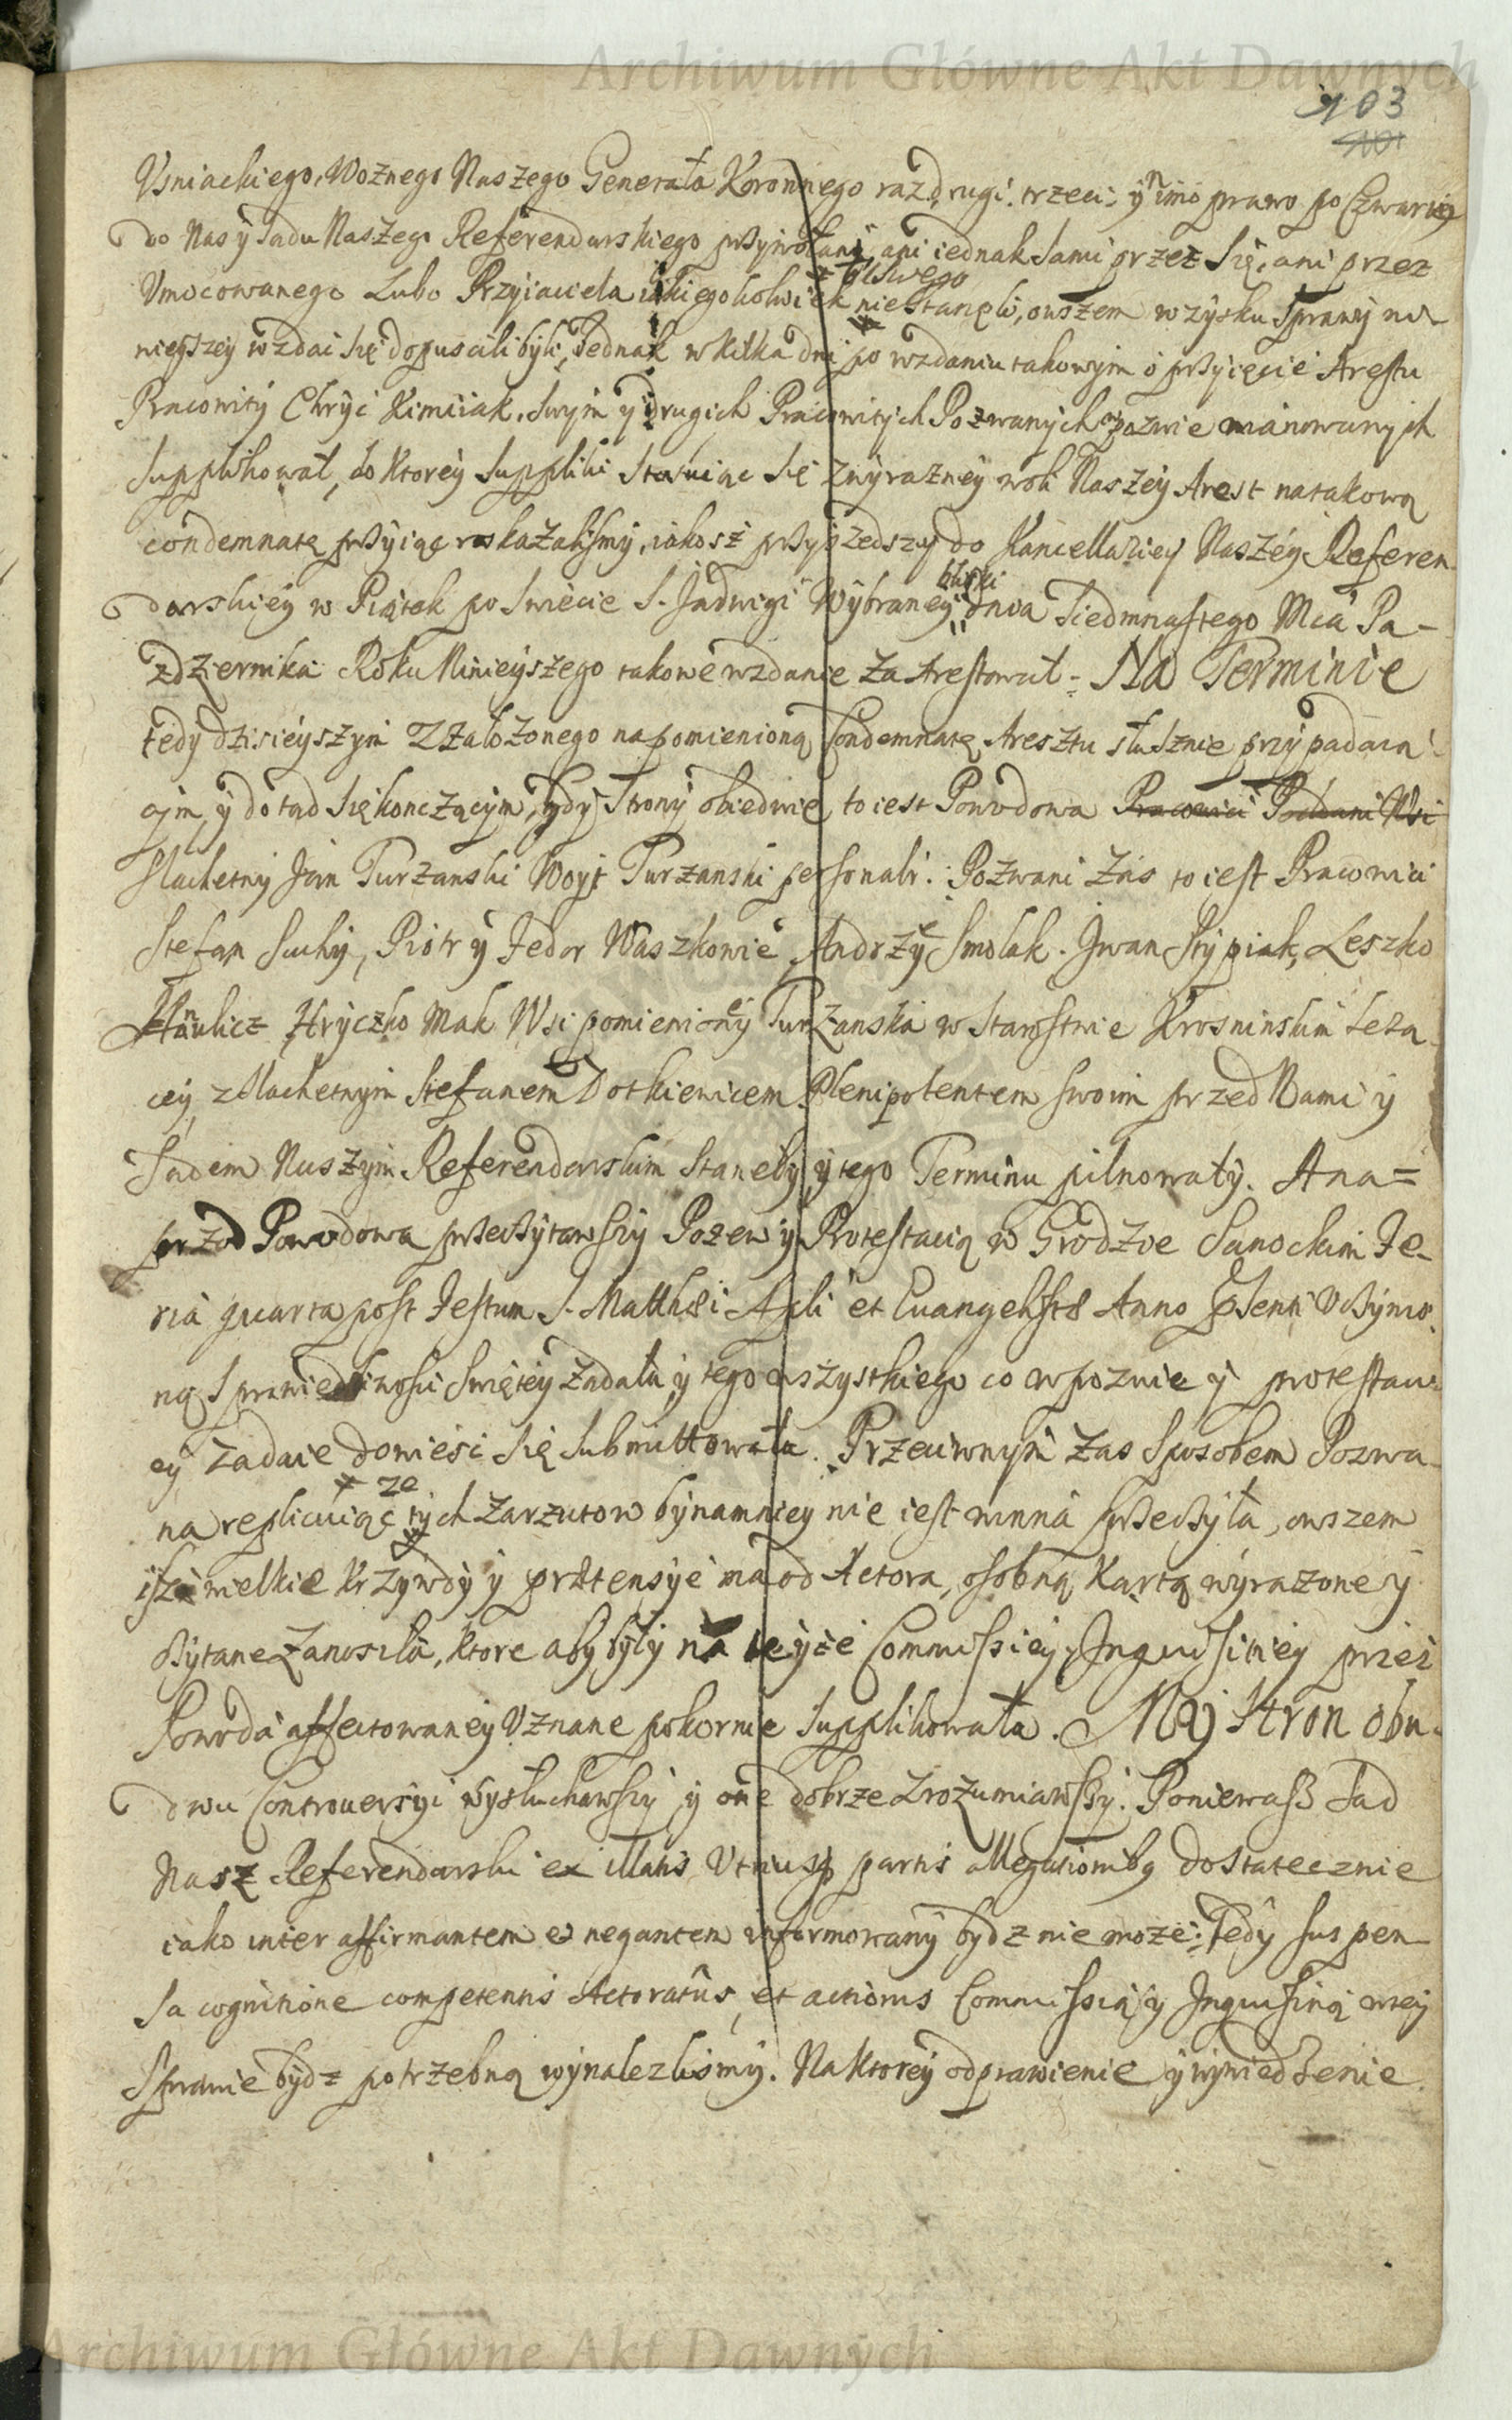 Archiwum Główne Akt Dawnych
103
101
Usniackiego, Woznego Naszego Generała Koronnego raz, drugi, trzeci, y imo prawo po Czwarty
do Nas y Sadu Naszego Referendarskiego przywołani, ani iednak Sami przez Się, ani przez
+ gdswego
Umocowanego Lubo Przyiaciela iakiegokolwiek nie Stanęli, owszem w zysku Sprawy ni-
nieyszey wzdać Się dopuscili byli, Jednak w kilka dni po wzdaniu takowym o przyięcie Arestu
Pracowity Chryć Kimciak, Swym y drugich Pracowitych Pozwanych w pozwie mianowanych
Supplikował, do Ktorey Suppliki Stosuiąc Się z wyrazney woli Naszey Arest na takową
condemnatę przyiąc roskazalismy, iakosz przyszedszy do Kancellariey Naszey Referen-
bliski
darskiey w Piątek po Swiecie S. Jadwigi Wybraney dnia Siedmnastego Mca Pa-
zdziernika Roku Ninieyszego takowe wzdanie zaArestował - Na Terminie
tedy dzisieyszym z załozonego na pomienioną Condemnatę Aresztu słusznie przypadaią-
cym, y dotąd Się konczącym, gdy Strony obiedwie to iest Powodowa Pracowici Poddani Wsi
Slachetny Jan Turzanski Woyt Turzanski personalr. Pozwani Zas to iest Pracowici
Stefan Suchy, Piotr y Fedor Waszkowie, Andrzey Smolak, Jwan Stypiak, Leszko
Hanulicz Hryczko Mak Wsi pomienioney Turzanska w Starostwie Krosninskim Leżą-
cey, z Slachetnym Stefanem Dotkiewicem Plenipotentem swoim przed Nami y
Sądem Naszym Referendarskim Staneły y tego Terminu pilnowały. A na=
przod Powodowa przeczytawszy Pozew y Protestacią w Grodzie Sanockim Fe-
ria quarta post Festum S. Matthæi Apli et Euangelistæ Anno Psenti Uczynio-
ną Sprawiedliwosci Swiętey Żadała y tego wszystkiego co w pozwie y protestaci-
ey zadaie dowieść Się Submittowała. Przeciwnym zas Sposobem Pozwa-
+ ze
na replikuiąc tych Zarzutow bynamniey nie iest winna przeczyła, owszem
isz wielkie krzywdy y prætensye ma od Actora, osobną Kartą wyrazone y
czytane Zanosiła, ktore aby były na teyże Commissiey y Inquisitiey przez
Powoda affectowaney Uznane pokornie Supplikowała. My Stron obu-
dwu Controuersyi wysłuchawszy y one dobrze Zrozumiawszy. Poniewasz Sąd
Nasz Referendarski ex illatis Utriusq partis allegationibg dostatecznie
iako inter affirmantem et negantem informowany bydz nie może, Tedy suspen-
sa cognitione competentis Actoratûs, et actionis Commissią y Inquisitią w tey
Sprawie bydz potrzebną wynalezlismy. Na Ktorey odprawienie y wywiedzenie
Archiwum Główne Akt Dawnych